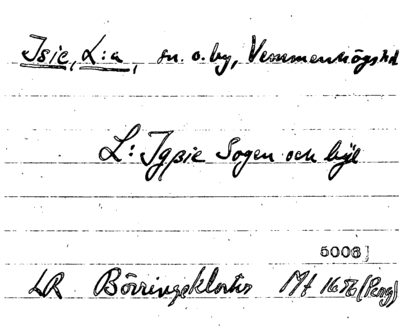 Isie, L:a, sn. o. by, Vemmenhögs hd
L: Igsie Sogen och bÿe
5006]
LR Börringekloster Mf 1656 (Peng)